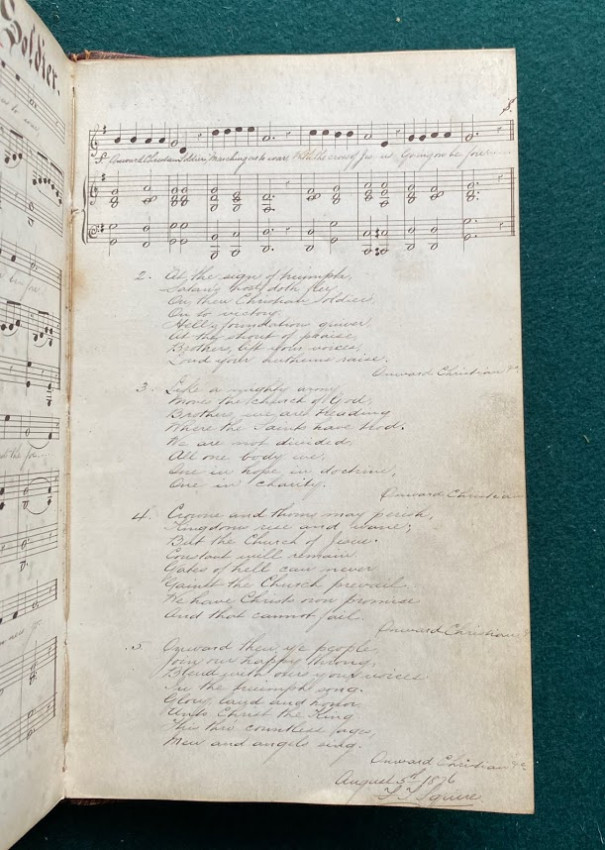 Soldier.
Onward Christian Soldiers, Marching as to war With the cross of Jesus Going on before
2. At the sign of triumph,
Satan's host doth flee
On, then Christian Soldiers,
On to victory.
Hell's foundations quiver,
At the shout of praise,
Brothers, lift your voices,
Loud your anthems raise.
Onward Christian &c.
3. Like a mighty army,
Moves the church of God,
Brothers, we are treading
Where the Saints have trod.
We are not divided,
All one body we,
One in hope, in doctrine,
One in charity.
Onward Christian
4. Crowns and thorns may perish,
Kingdoms rise and wane;
But the Church of Jesus
Constant will remain
Gates of hell can never
'Gainst the Church prevail
We have Christ's own promise
And that cannot fail.
Onward Christian &
5. Onward then, ye people,
Join our happy throng,
Blend with ours your voices
In the triumph song.
Glory, laud and honor
Unto Christ the King
This thro' countless ages,
Men and angels sing.
Onward Christian &c.
August 5th 1876
Squire